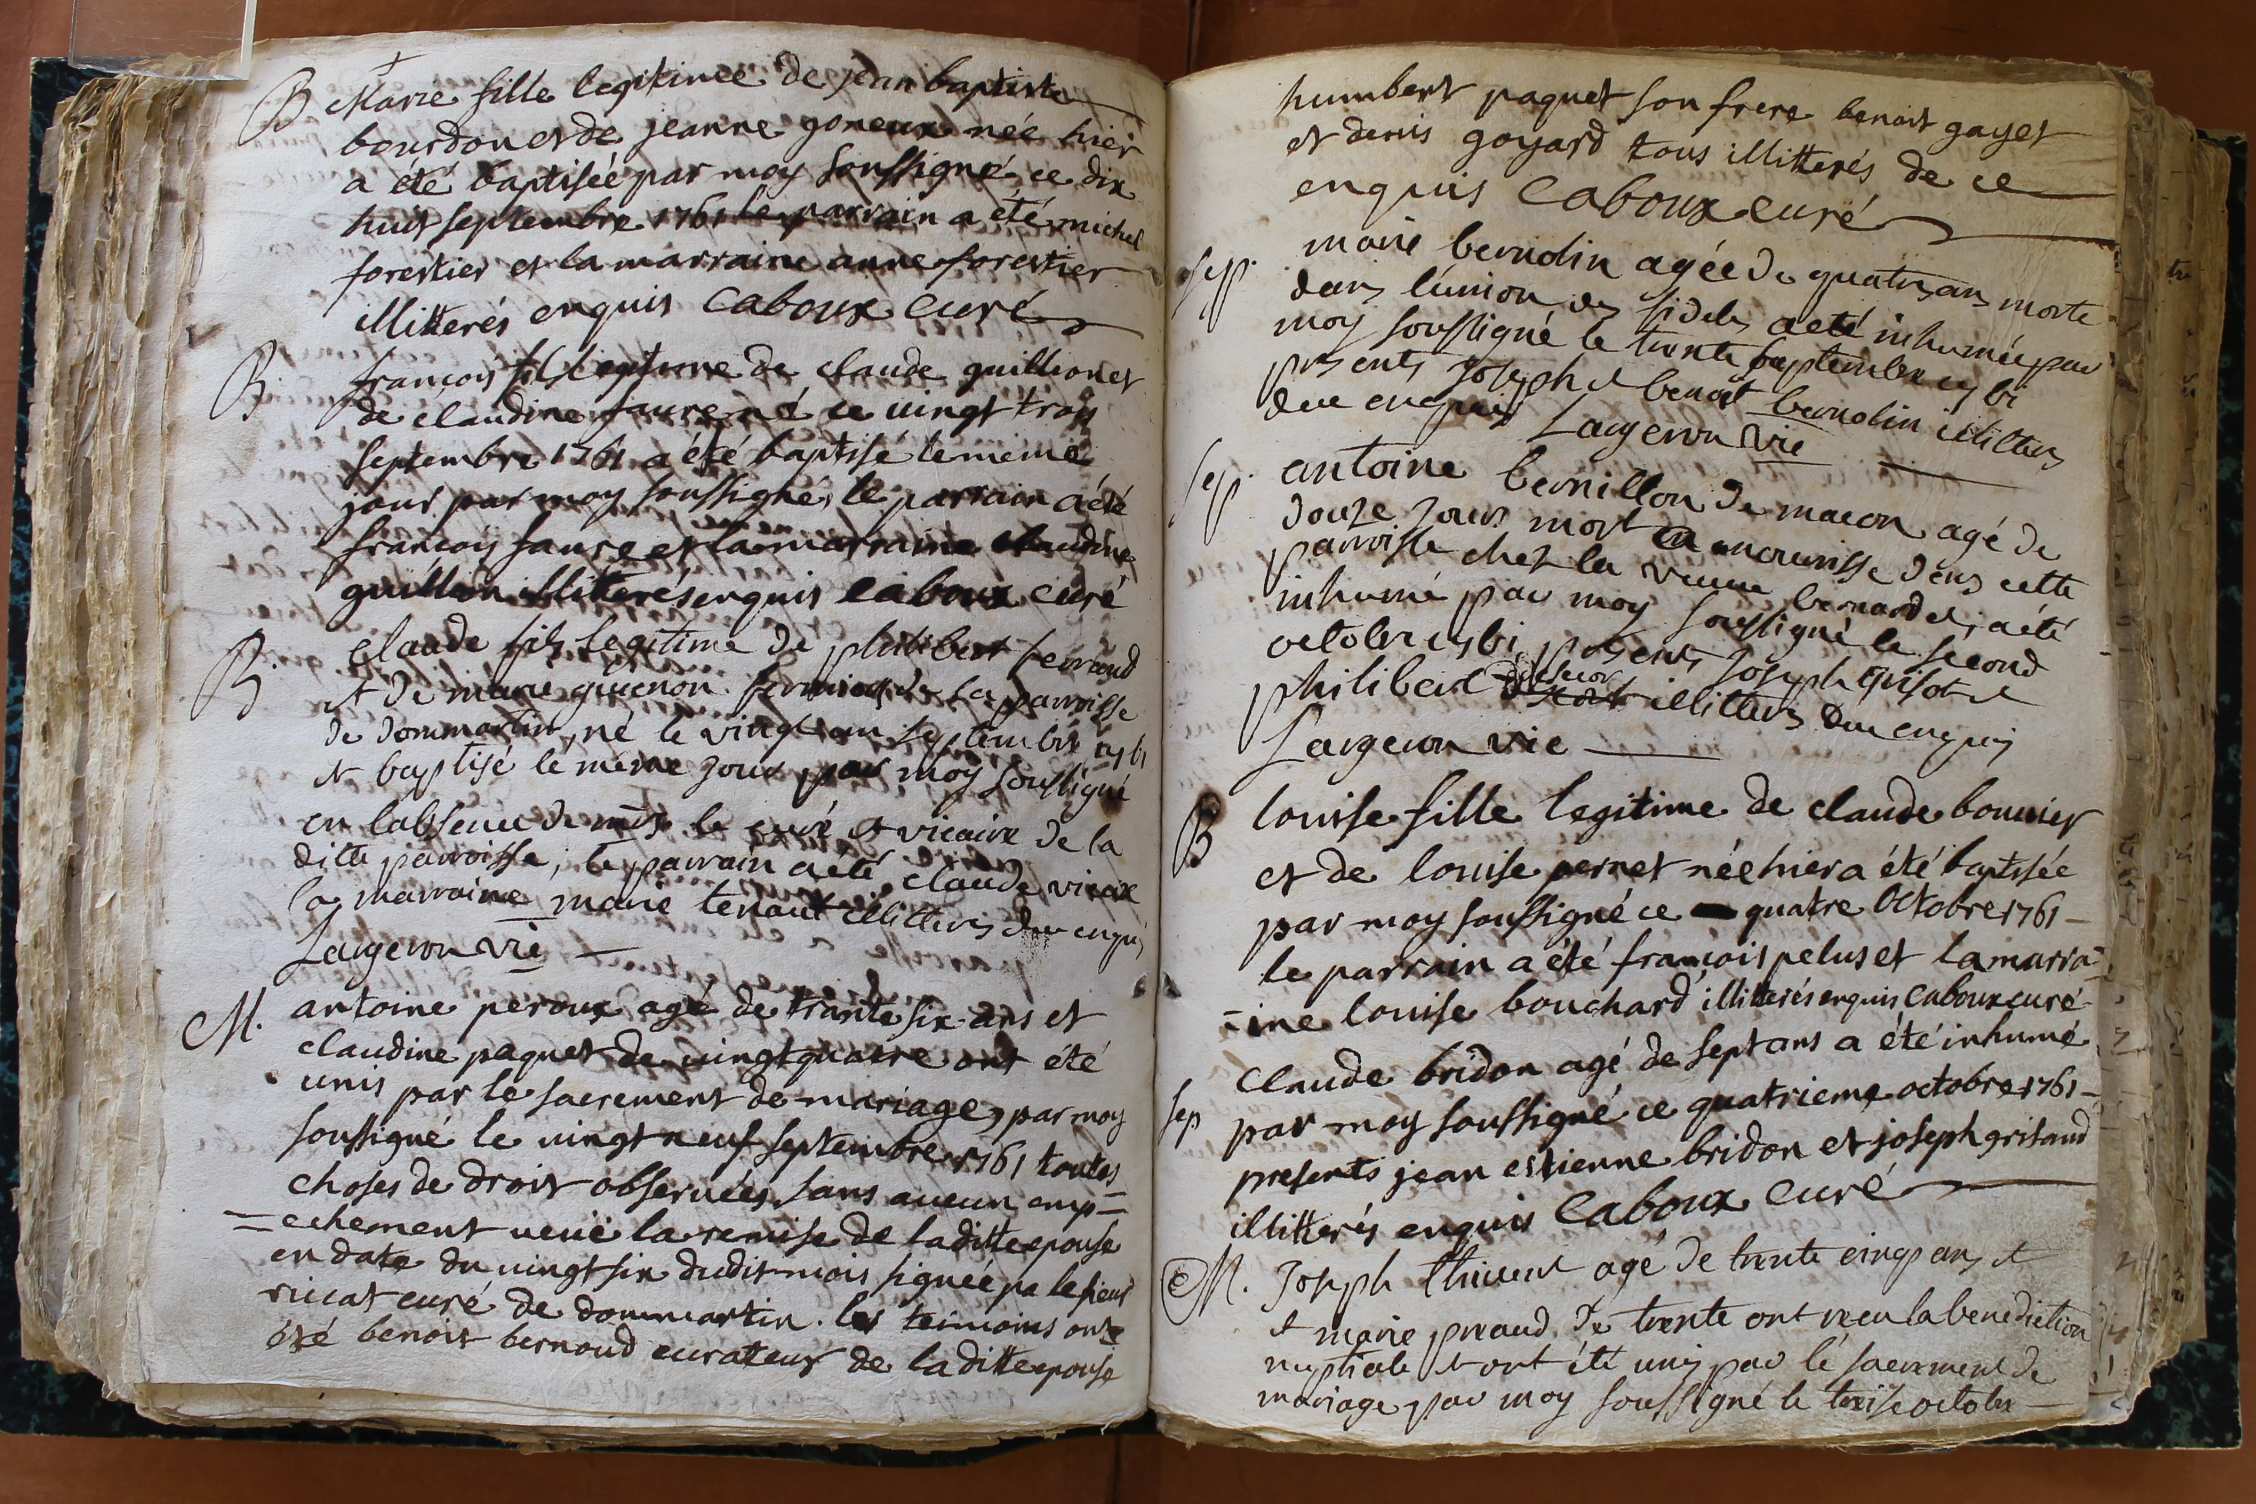 B Marie fille legitimee de jean baptiste
bourdon et de jeanne goneux née hier
a été baptisée par moy soussigné ce dix
huit septembre 1761 le parrain a été michel
forestier et la marraine anne forestier
illitterés enquis Caboux curé
B. françois fils legitime de claude guillion et
de claudine faure né ce vingt trois
septembre 1761 a été baptisé le même
jour par moy soussigné, le parrain a été
françois faure et la marraine claudine
guillion illitterés enquis Caboux curé
B. claude fils legitime de philibert ferrand
et de marie guenon de la parroisse
de dommartin, né le vingt un septembre
et baptisé le même jour par moy soussigné
en l'absence de le curé et vicaire de la
ditte parroisse; le parrain a été claude vieux
la marraine marie tenaut illitterés enquis
Largeron vic
M. antoine peroux agé de trante six ans et
claudine paquet de vingt quatre ont été
unis par le sacrement de mariage, par moy
soussigné le vingt neuf septembre 1761 toutes
choses de droit observées, sans aucun emp=
=echement veüe la remise de laditte epouse
en date du vingt six dudit mois signée pa le sieur
ruicat curé de dommartin. les temoins ont
été benoit bernoud curateur de laditte epouse
humbert paquet son frere benoit gayet
et denis goyard tous illitterés de ce
enquis Caboux curé
sep. marie bernolin agée de quatre ans morte
dans l'union des fideles a eté inhumée par
moy soussigné le trente septembre
presents joseph et benoît bernolin illitterés
enquis Largeron vic
sep. antoine bernillon de macon agé de
douze jours mort en nourisse dans cette
parroisse chez la veuve bernardet, a été
inhumé par moy soussigné le second
octobre presents joseph grisot et
philibert illitterés enquis
Largeron vic
B louise fille legitime de claude bouvier
et de louise pernet née hier a été baptisée
par moy soussigné ce quatre Octobre 1761
le parrain a été françois pelus et la marra=
=ine louise bouchard illitterés enquis Caboux curé
sep Claude bridon agé de sept ans a été inhumé
par moy soussigné ce quatrieme octobre 1761
presents jean estienne bridon et joseph grisaud
illitterés enquis Caboux curé
M. Joseph thivent agé de trente cinq ans et
et marie preaud de trente ont reçu la benediction
nuptiale et ont été unis par le sacrement de
mariage par moy soussigné le treise octobre